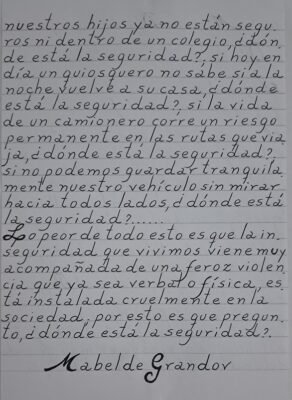 nuestros hijos ya no están segu
ros ni dentro de un colegio, ¿dón
de está la seguridad?, si hoy en
día un quiosquero no sabe si a la
noche vuelve a su casa, ¿dónde
está la seguridad?, si la vida
de un camionero corre un riesgo
permanente en las rutas que via
ja, ¿dónde está la seguridad?
si no podemos guardar tranquila
mente nuestro vehículo sin mirar
hacia todos lados, ¿dónde está
la seguridad?......
Lo peor de todo esto es que la in
seguridad que vivimos viene muy
acompañada de una feroz violen
cia que ya sea verbal o física, es
tá instalada cruelmente en la
sociedad, por esto es que pregun
to, ¿dónde está la seguridad?.
Mabel de Grandov